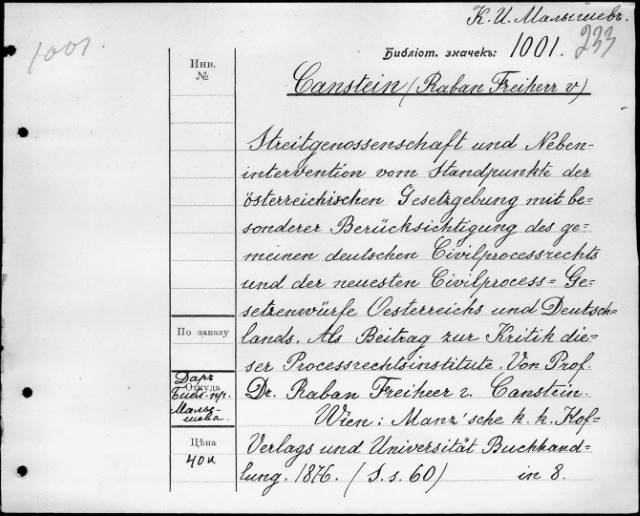 К. И. Малышевъ.
1001.
Библіот. значекъ: 1001. 233
Инв.
№
Canstein (Raban Freiherr v)
Streitgenossenschaft und Neben-
intervention vom Standpunkte der
österreichischen Gesetzgebung mit be-
sonderer Berücksichtigung des ge-
meinen deutschen Civilprocessrechts
und der neuesten Civilprocess-Ge-
setzenwürfe Oesterreichs und Deutsch-
lands. Als Beitrag zur Kritik die-
ser Processrechtsinstitute. Von Prof.
Dr. Raban Freiheer v. Canstein.
Wien: Manz'sche k. k. Hof-
Verlags und Universität Buchhand-
lung. 1876. (S. s. 60) in 8.
По заказу
Даръ
Откуда
Библ. пр.
Малы-
шева.
Цѣна
40 к